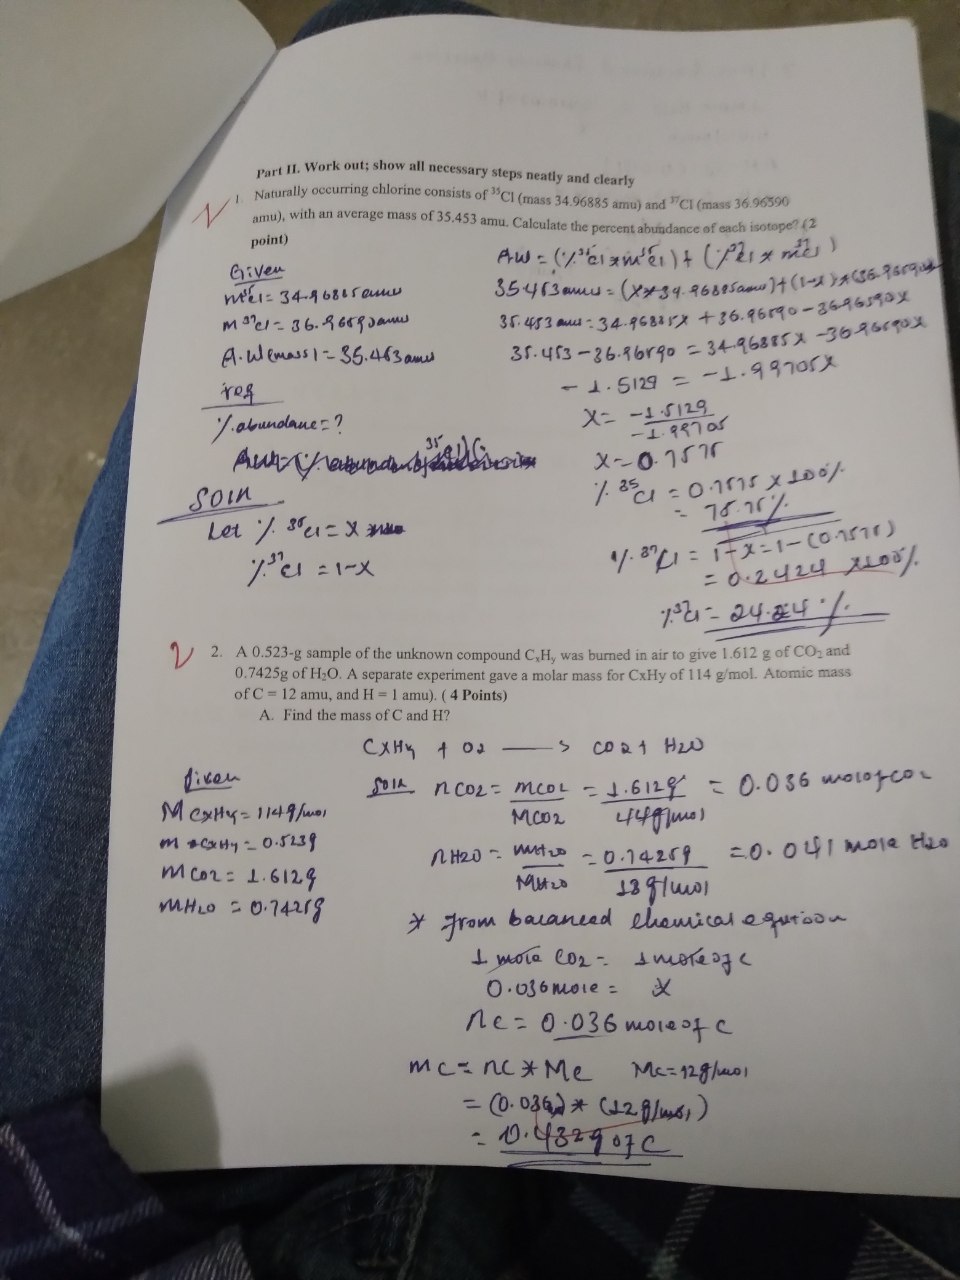 Part II. Work out; show all necessary steps neatly and clearly
1. Naturally occurring chlorine consists of ³⁵Cl (mass 34.96885 amu) and ³⁷Cl (mass 36.96590
amu), with an average mass of 35.453 amu. Calculate the percent abundance of each isotope? (2
point)
Given
m³⁵cl = 34.96885amu
m³⁷cl = 36.96590amu
A.W(mass) = 35.453amu
req
% abundane = ?
Soln
Let % ³⁵cl = X
%³⁷cl = 1-X
AW = (%³⁵cl x m³⁵cl) + (%³⁷cl x m³⁷cl)
35.453amu = (X*34.96885amu)+(1-x)*(36.96590
35.453 amu = 34.96885X + 36.96590 - 36.96590X
35.453 - 36.96590 = 34.96885X - 36.96590X
- 1.5129 = -1.99705X
X = -1.5129
-1.99705
X = 0.7575
% ³⁵Cl = 0.7575 X 100%
= 75.75%
% ³⁷Cl = 1-X = 1-(0.7575)
= 0.2424 X100%
%³⁷cl = 24.24 %
2
2. A 0.523-g sample of the unknown compound CₓHᵧ was burned in air to give 1.612 g of CO₂ and
0.7425g of H₂O. A separate experiment gave a molar mass for CxHy of 114 g/mol. Atomic mass
of C = 12 amu, and H = 1 amu). ( 4 Points)
A. Find the mass of C and H?
CxHy + O2 → CO2 + H2O
Given
M CxHy = 114g/mol
m CxHy = 0.523g
mCO2 = 1.612g
mH2O = 0.7425g
Soln nCO2 = mCO2 = 1.612g = 0.036 mol of CO2
MCO2 44g/mol
nH2O = mH2O = 0.7425g = 0.041 mole H2O
MH2O 18g/mol
* From balanced chemical eqution
1 mole CO2 = 1 mole of c
0.036mole = X
nc = 0.036 mole of C
mc = nc * Mc Mc = 12g/mol
= (0.036) * (12g/mol)
= 0.432g of C